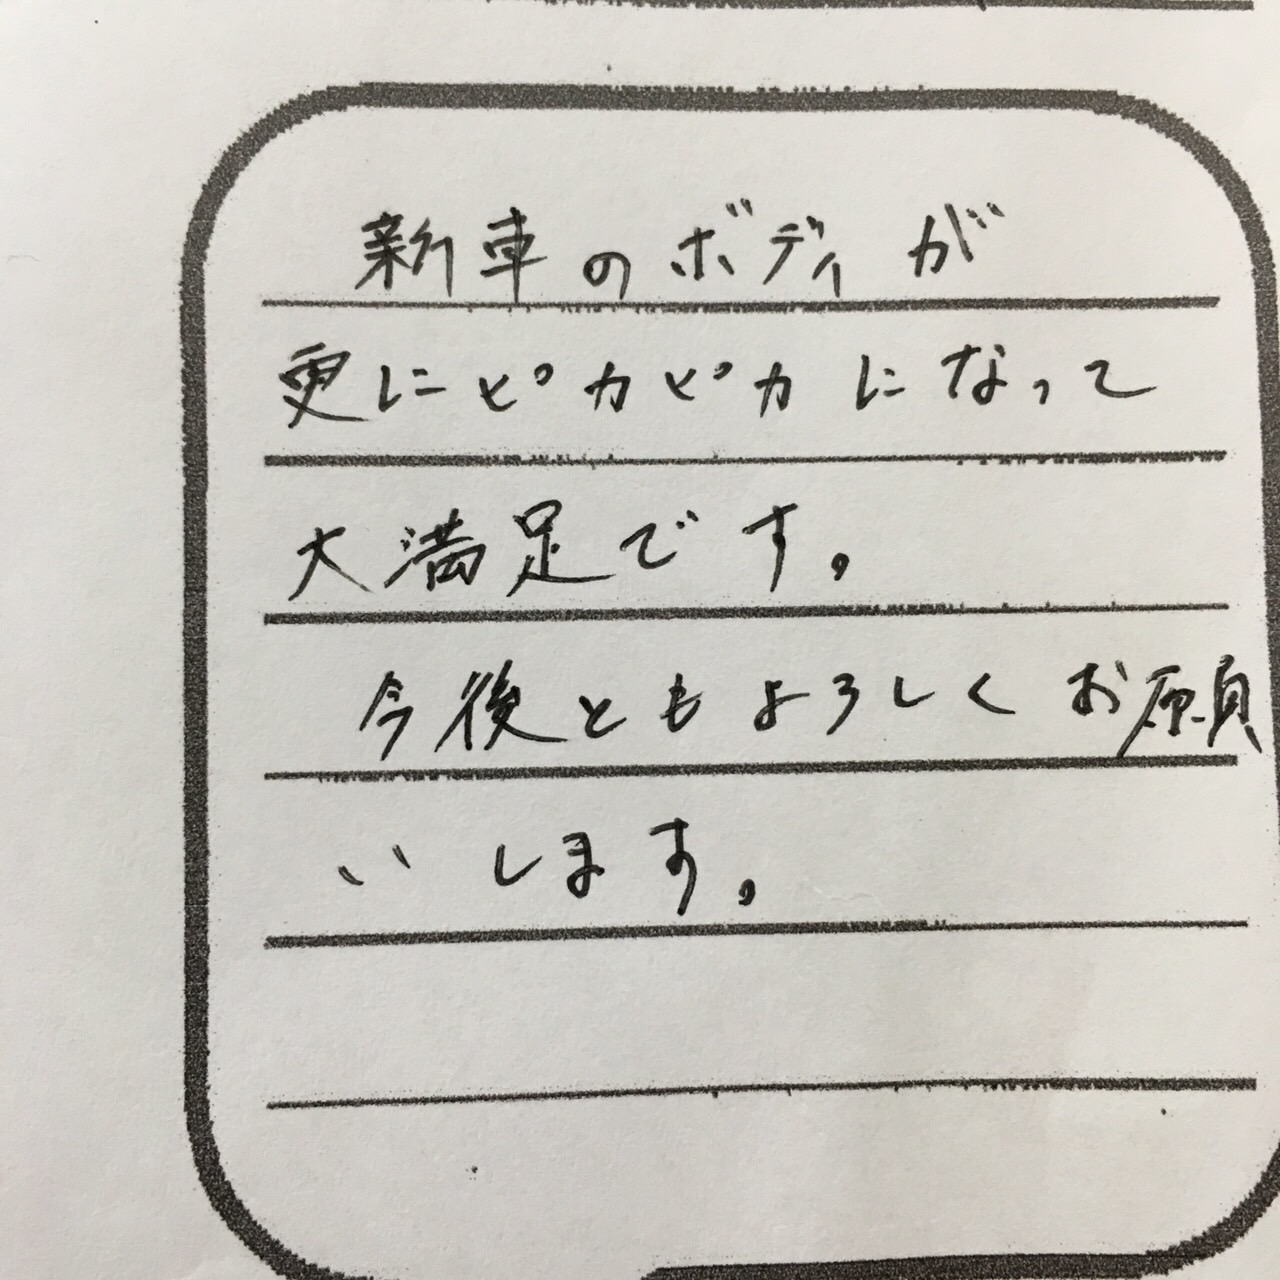 新車のボディが
更にピカピカになって
大満足です。
今後ともよろしくお願
いします。